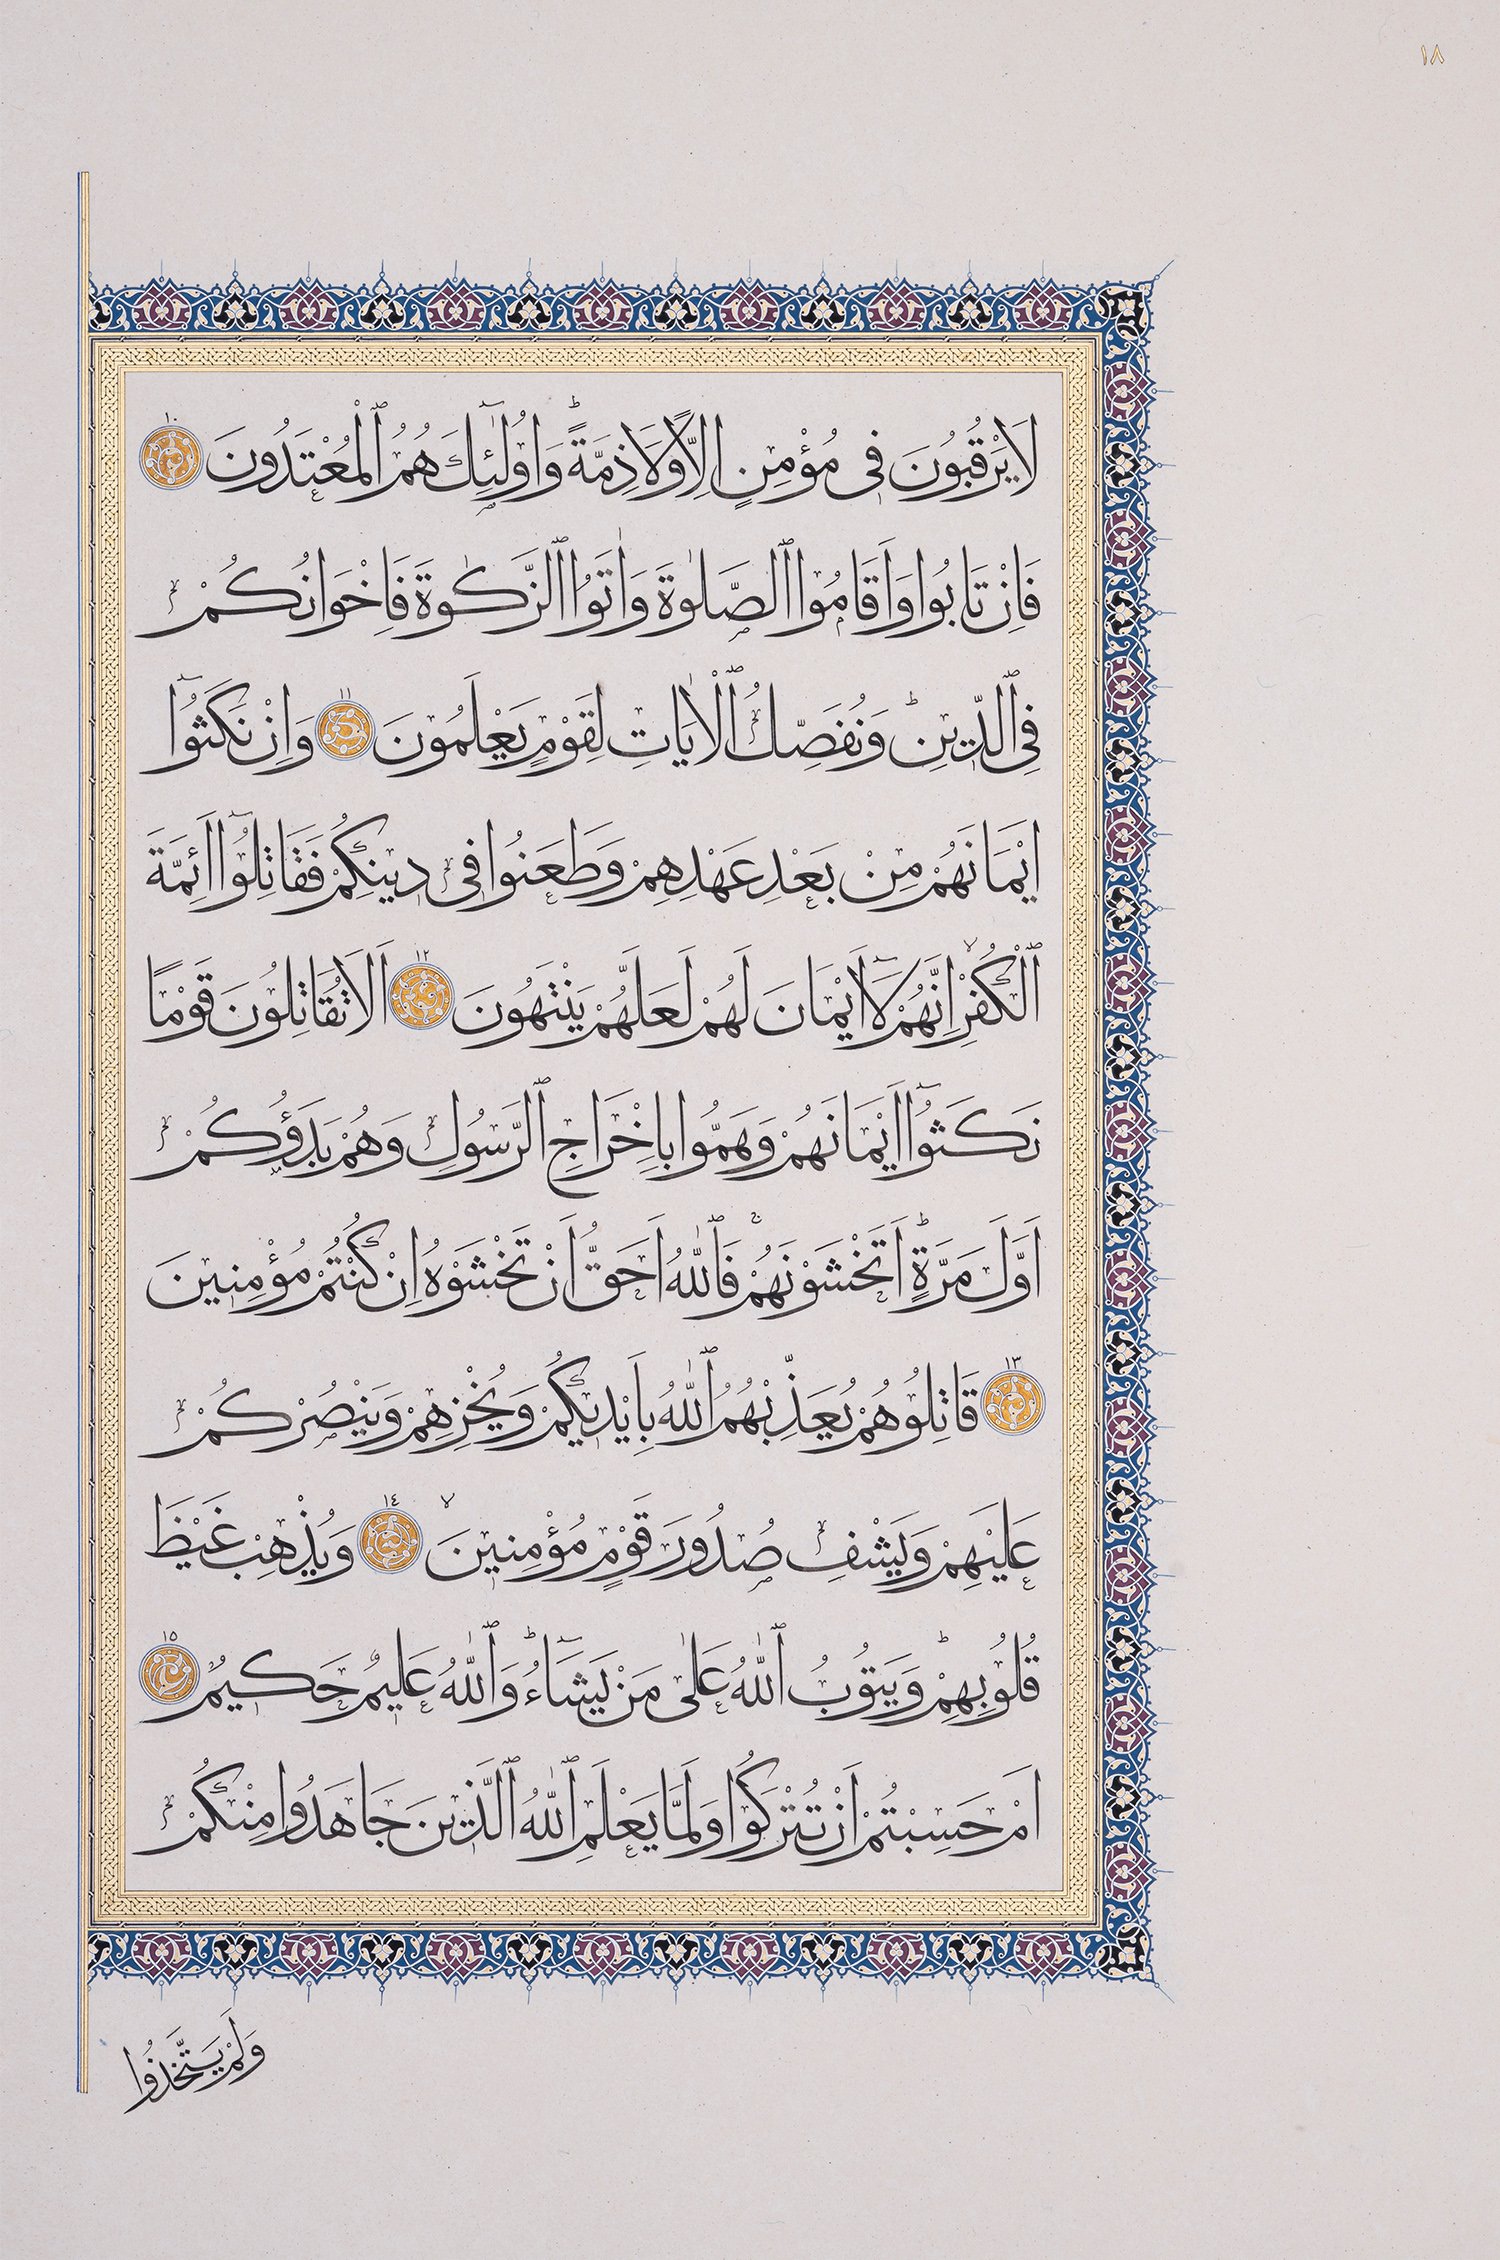 ١٨
لَا يَرْقُبُونَ فِى مُؤْمِنٍ اِلًّا وَلَا ذِمَّةً ۜ وَاُولٰٓئِكَ هُمُ ٱلْمُعْتَدُونَ ١٠
فَاِنْ تَابُوا وَاَقَامُوا ٱلصَّلٰوةَ وَاٰتَوُا ٱلزَّكٰوةَ فَاِخْوَانُكُمْ
فِى ٱلدّ۪ينِ ۜ وَنُفَصِّلُ ٱلْاٰيَاتِ لِقَوْمٍ يَعْلَمُونَ ١١ وَاِنْ نَكَثُٓوا
اَيْمَانَهُمْ مِنْ بَعْدِ عَهْدِهِمْ وَطَعَنُوا فِى دِينِكُمْ فَقَاتِلُٓوا اَئِمَّةَ
ٱلْكُفْرِ اِنَّهُمْ لَٓا اَيْمَانَ لَهُمْ لَعَلَّهُمْ يَنْتَهُونَ ١٢ اَلَا تُقَاتِلُونَ قَوْمًا
نَكَثُٓوا اَيْمَانَهُمْ وَهَمُّوا بِاِخْرَاجِ ٱلرَّسُولِ وَهُمْ بَدَؤُكُمْ
اَوَّلَ مَرَّةٍ ۜ اَتَخْشَوْنَهُمْ ۚ فَٱللّٰهُ اَحَقُّ اَنْ تَخْشَوْهُ اِنْ كُنْتُمْ مُؤْمِنِينَ
١٣ قَاتِلُوهُمْ يُعَذِّبْهُمُ ٱللّٰهُ بِاَيْدِيكُمْ وَيُخْزِهِمْ وَيَنْصُرْكُمْ
عَلَيْهِمْ وَيَشْفِ صُدُورَ قَوْمٍ مُؤْمِنِينَ ۙ ١٤ وَيُذْهِبْ غَيْظَ
قُلُوبِهِمْ ۜ وَيَتُوبُ ٱللّٰهُ عَلٰى مَنْ يَشَٓاءُ ۜ وَٱللّٰهُ عَلِيمٌ حَكِيمٌ ١٥
اَمْ حَسِبْتُمْ اَنْ تُتْرَكُوا وَلَمَّا يَعْلَمِ ٱللّٰهُ ٱلَّذ۪ينَ جَاهَدُوا مِنْكُمْ
وَلَمْ يَتَّخِذُوا